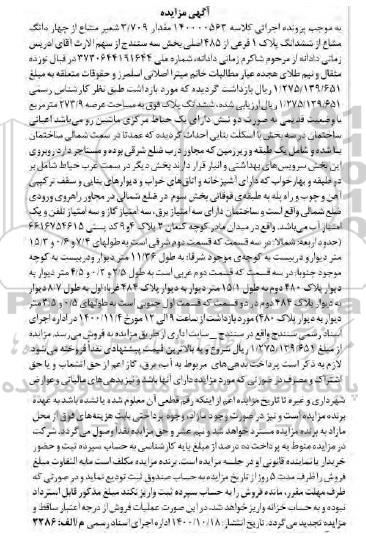 آگهی مزایده
به موجب پرونده اجرائی کلاسه ۱۴۰۰۰۰۵۶۳ مقدار ۳/۷۰۹ شعیر مشاع از چهار دانگ
مشاع از ششدانگ پلاک ۱ فرعی از ۴۸۵ اصلی بخش سه سنندج از سهم الارث آقای ادریس
زمانی دادانه از مرحوم شاکرم زمانی دادانه، شماره ملی ۳۷۳۰۶۴۴۱۹۱۶۴۴ در قبال نوزده
مثقال و نیم طلای هجده عیار مطالبات خانم میترا اصلانی اسلمرز و حقوقات متعلقه به مبلغ
۱/۲۷۵/۱۳۹/۶۵۱ ریال بازداشت گردیده که مورد بازداشت طبق نظر کارشناس رسمی
۱/۲۷۵/۱۳۹/۶۵۱ ریال ارزیابی شده، ششدانگ پلاک فوق به مساحت عرصه ۲۷۳/۹ مترمربع
با وضعیت قدیمی به صورت دو نبش دارای یک حیاط مرکزی ماشین رو می‌باشد اعیانی
ساختمان در سه بخش با اسکلت بنایی احداث گردیده که عمدتا در سمت شمالی ساختمان
بنا شده و شامل یک طبقه و زیرزمین که مجاور درب ضلع شرقی بوده و مستاجر دارد روبروی
این بخش سرویس‌های بهداشتی و انبار قرار دارند بخش دیگر در سمت غرب حیاط شامل بر
دو طبقه و بهارخواب که دارای آشپزخانه و اتاق‌های خواب و دیوارهای بنایی و سقف ترکیبی
آهن و چوب و راه پله به طبقه‌ی فوقانی بخش سوم در ضلع شمالی در مجاور راهروی ورودی
ضلع شمالی واقع است و ساختمان دارای سه امتیاز برق، سه امتیاز گاز و سه امتیاز تلفن و یک
امتیاز آب می‌باشد. واقع در میدان مادر کوچه گلمان ۲ پلاک ۴ و ۹ کد پستی ۶۶۱۶۷۵۴۶۱۵
(حدود اربعه: شمالا: در سه قسمت که قسمت دوم شرقی است به طولهای ۷/۴ و ۰/۶ و ۱۵/۳
متر دیوار و دربست به کوچه‌ی موجود شرقا: به طول ۱۱/۳۶ متر دیوار و دربیست به کوچه
موجود جنوبا: در سه قسمت که قسمت دوم غربی است به طول ۲/۵ و ۰/۳ و ۴/۵ متر دیوار به
دیوار پلاک ۴۸۰ دوم به طول ۱۵/۱ متر دیوار به دیوار پلاک ۴۸۴ غربا: اول به طول ۷/۸ دیوار
به دیوار پلاک ۴۸۴ دوم در دو قسمت که قسمت اول جنوبی است به طولهای ۰/۵ و ۳/۵ متر
دیوار به دیوار پلاک ۴۸۰) مورد بازداشت از ساعت ۹ الی ۱۲ مورخ ۱۴۰۰/۱۱/۴ در اداره اجرای
اسناد رسمی سنندج واقع در سنندج _ سایت اداری از طریق مزایده به فروش می‌رسد. مزایده
از مبلغ ۱/۲۷۵/۱۳۹/۶۵۱ ریال شروع و به بالاترین قیمت پیشنهادی نقدا فروخته می‌شود
لازم به ذکر است پرداخت بدهی‌های مربوط به آب، برق، گاز اعم از حق انشعاب و یا حق
اشتراک و مصرف در صورتی که مورد مزایده دارای آنها باشد و نیز بدهی‌های مالیاتی و عوارض
شهرداری و غیره تا تاریخ مزایده اعم از اینکه رقم قطعی آن معلوم شده یا نشده باشد به عهده
برنده مزایده است و نیز در صورت وجود مازاد، وجوه پرداختی بابت هزینه‌های فوق از محل
مازاد به برنده مزایده مسترد خواهد شد و نیم عشر و حق مزایده نقدا وصول می‌گردد. شرکت
در مزایده منوط به پرداخت ده درصد از مبلغ پایه کارشناسی به حساب سپرده ثبت و حضور
خریدار یا نماینده قانونی او در جلسه مزایده است. برنده مزایده مکلف است مابه التفاوت مبلغ
فروش را ظرف مدت ۵ روز از تاریخ مزایده به حساب صندوق ثبت تودیع نماید و در صورتی که
ظرف مهلت مقرر، مانده فروش را به حساب سپرده ثبت واریز نکند مبلغ مذکور قابل استرداد
نبوده و به حساب خزانه واریز خواهد شد، در این صورت عملیات فروش از درجه اعتبار ساقط و
مزایده تجدید می‌گردد. تاریخ انتشار: ۱۴۰۰/۱۰/۱۸ اداره اجرای اسناد رسمی م/الف: ۳۲۸۶